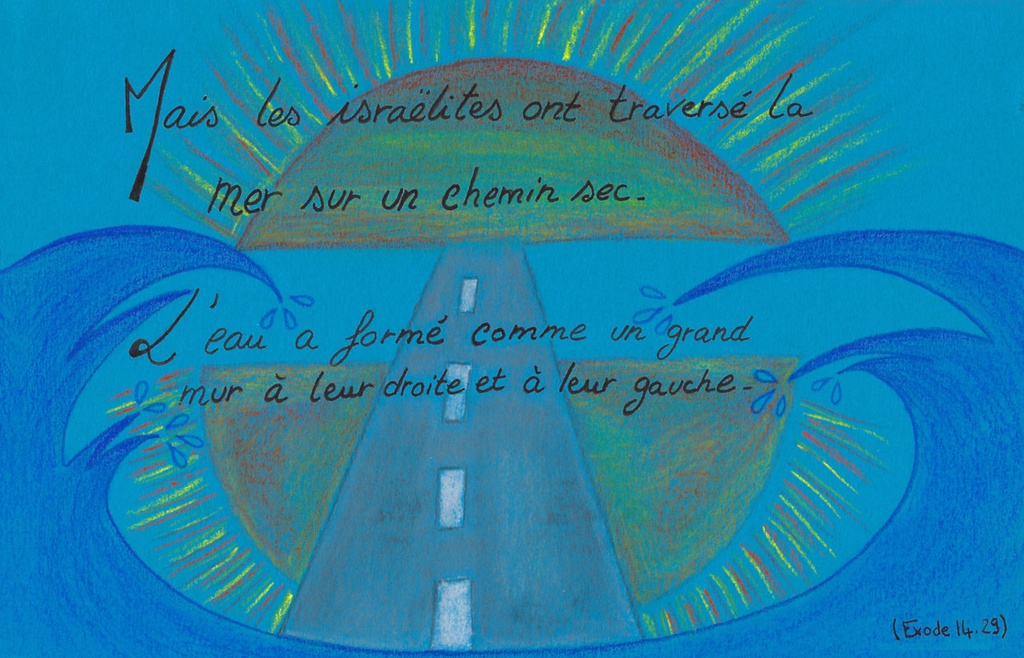 Mais les israëlites ont traversé la
mer sur un chemin sec.
L'eau a formé comme un grand
mur à leur droite et à leur gauche.
(Exode 14.29)